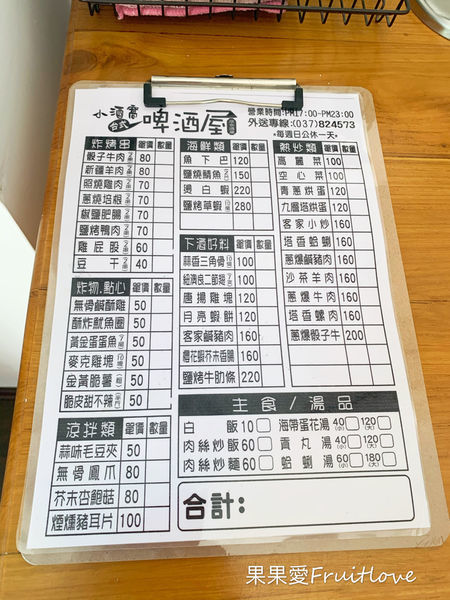 小酒窩
台式
啤酒屋
營業時間:PM17:00~PM23:00
外送專線:(037)824573
*每週日公休一天*
炸烤串 單價 數量
骰子牛肉 80
新疆羊肉 80
照燒雞肉 70
蔥燒培根 70
椒鹽肥腸 70
鹽烤鴨肉 70
雞屁股 60
豆干 40
炸物.點心 單價 數量
無骨鹹酥雞 50
酥炸魷魚圈 50
黃金蛋蛋魚 50
麥克雞塊 50
金黃脆薯 50
脆皮甜不辣 50
涼拌類 單價 數量
蒜味毛豆夾 50
無骨鳳爪 80
芥末杏鮑菇 80
煙燻豬耳片 100
海鮮類 單價 數量
魚下巴 120
鹽燒鯖魚 150
燙白蝦 220
鹽烤草蝦 280
下酒好料 單價 數量
蒜香三角骨 100
紐澳良二節翅 100
唐揚雞塊 120
月亮蝦餅 120
客家鹹豬肉 160
櫻花蝦芥末香腸 160
鹽烤牛肋條 220
熱炒類 單價 數量
高麗菜 100
空心菜 100
青蔥烘蛋 120
九層塔烘蛋 120
客家小炒 160
塔香蛤蜊 160
蔥爆鹹豬肉 160
沙茶羊肉 160
蔥爆牛肉 160
塔香螺肉 160
蔥爆骰子牛 200
主食/湯品
白飯 10 海帶蛋花湯 40(小) 120(大)
肉絲炒飯 60 貢丸湯 40(小) 120(大)
肉絲炒麵 60 蛤蜊湯 60(小) 180(大)
合計:
果果愛Fruitlove